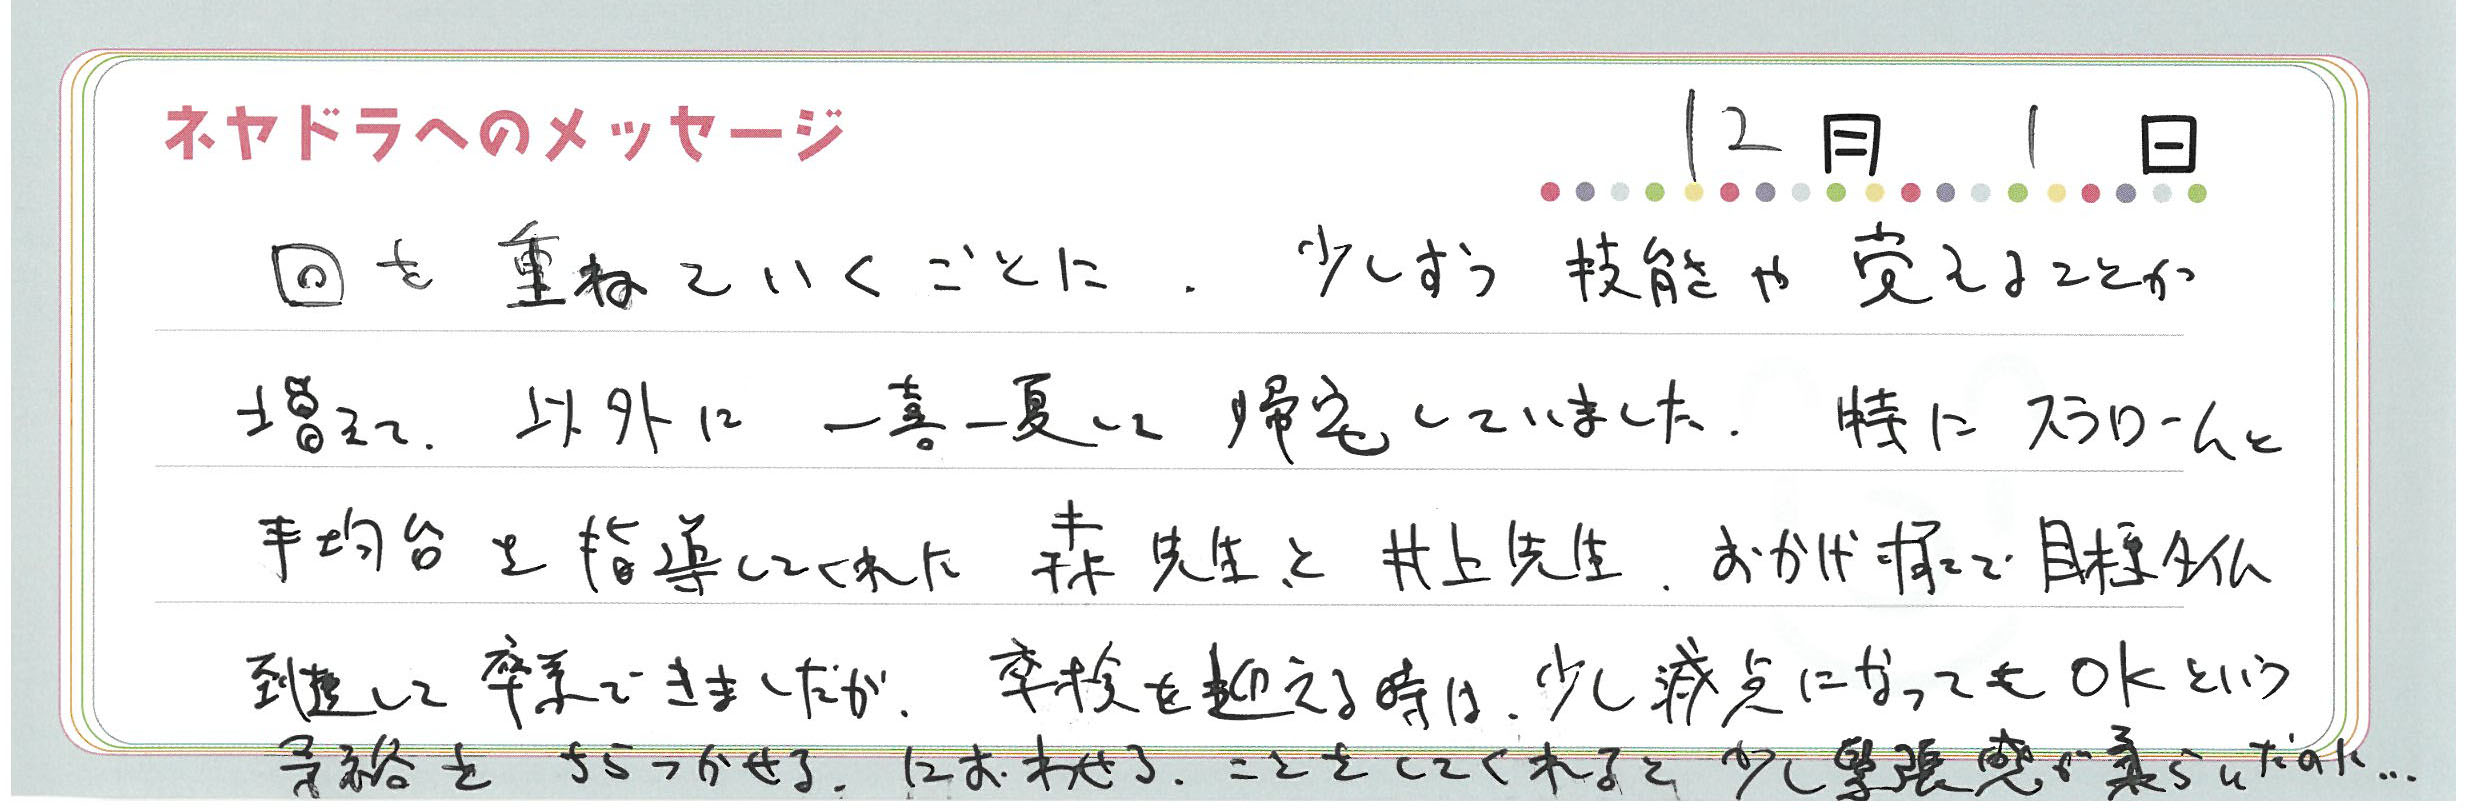 ネヤドラへのメッセージ
12月 1日
回を重ねていくごとに、少しずつ技能や覚えることが
増えて、以外に一喜一夏して帰宅していました。特にスラロームと
平均台を指導してくれた森先生と井上先生、おかげ様で目標タイム
到達して卒業できましたが、卒検を迎える時は、少し減点になってもOKという
余裕をちらつかせる、におわせる、ことをしてくれると少し緊張感が柔らいだのに…